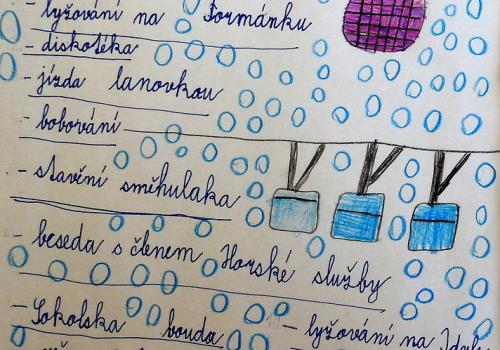 - lyžování na Formánku
- diskotéka
- jízda lanovkou
- bobování
- stavění směhulaka
- beseda s členem Horské služby
- Sokolska bouda
- lyžování na